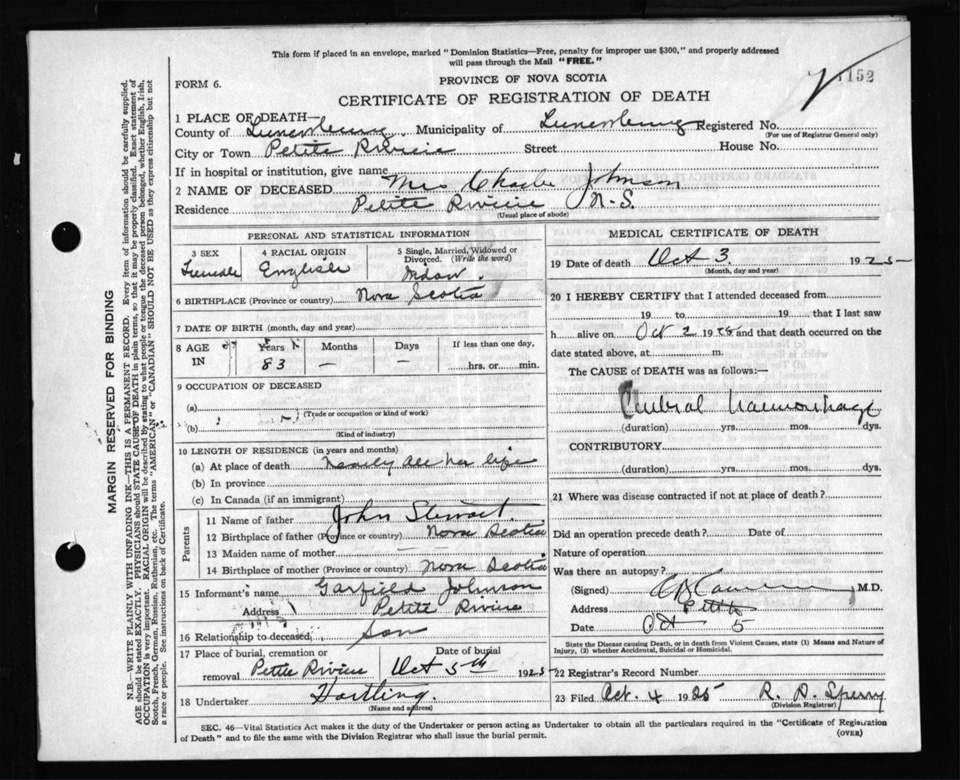 This form if placed in an envelope, marked "Dominion Statistics—Free, penalty for improper use $300," and properly addressed
will pass through the Mail "FREE."
FORM 6.
PROVINCE OF NOVA SCOTIA
1152
CERTIFICATE OF REGISTRATION OF DEATH
1 PLACE OF DEATH—
County of Lunenburg Municipality of Lunenburg Registered No.
(For use of Registrar General only)
City or Town Petite Riviere Street House No.
If in hospital or institution, give name
2 NAME OF DECEASED Mrs Charles Johnson
Residence Petite Riviere N-S.
(Usual place of abode)
PERSONAL AND STATISTICAL INFORMATION
3 SEX
Female
4 RACIAL ORIGIN
English
5 Single, Married, Widowed or
Divorced. (Write the word)
Widow.
6 BIRTHPLACE (Province or country) Nova Scotia
7 DATE OF BIRTH (month, day and year)
8 AGE
IN
Years
83
Months
—
Days
—
If less than one day,
hrs. or min.
9 OCCUPATION OF DECEASED
(a)
(Trade or occupation or kind of work)
(b)
(Kind of industry)
10 LENGTH OF RESIDENCE (in years and months)
(a) At place of death nearly all her life
(b) In province
(c) In Canada (if an immigrant)
Parents
11 Name of father John Stewart
12 Birthplace of father (Province or country) Nova Scotia
13 Maiden name of mother — —
14 Birthplace of mother (Province or country) Nova Scotia
15 Informant's name Garfield Johnson
Address Petite Riviere
16 Relationship to deceased Son
17 Place of burial, cremation or Date of burial
removal Petite Riviere Oct 5th 1925
18 Undertaker Hartling.
(Name and address)
MEDICAL CERTIFICATE OF DEATH
19 Date of death Oct 3. 1925
(Month, day and year)
20 I HEREBY CERTIFY that I attended deceased from
19 to 19 that I last saw
h alive on Oct 2 1925 and that death occurred on the
date stated above, at m.
The CAUSE of DEATH was as follows:—
Cerebral Haemorrhage
(duration) yrs. mos. dys.
CONTRIBUTORY
(duration) yrs. mos. dys.
21 Where was disease contracted if not at place of death?
Did an operation precede death? Date of
Nature of operation
Was there an autopsy?
(Signed) M.D.
Address Petite
Date Oct 5
State the Disease causing Death, or in death from Violent Causes, state (1) Means and Nature of
Injury, (2) whether Accidental, Suicidal or Homicidal.
22 Registrar's Record Number
23 Filed Oct. 4 1925 R. D. Sperry
(Division Registrar)
SEC. 46—Vital Statistics Act makes it the duty of the Undertaker or person acting as Undertaker to obtain all the particulars required in the "Certificate of Registration
of Death" and to file the same with the Division Registrar who shall issue the burial permit.
(OVER)
MARGIN RESERVED FOR BINDING
N.B.—WRITE PLAINLY WITH UNFADING INK—THIS IS A PERMANENT RECORD. Every item of information should be carefully supplied.
AGE should be stated EXACTLY. PHYSICIANS should STATE CAUSE OF DEATH in plain terms, so that it may be properly classified. Exact statement of
OCCUPATION is very important. RACIAL ORIGIN will be described by stating to what people or tongue the deceased person belonged, whether English, Irish,
Scotch, French, German, Russian, Ruthenian, etc. The terms "AMERICAN" or "CANADIAN" SHOULD NOT BE USED as they express citizenship but not
a race or people. See instructions on back of Certificate.